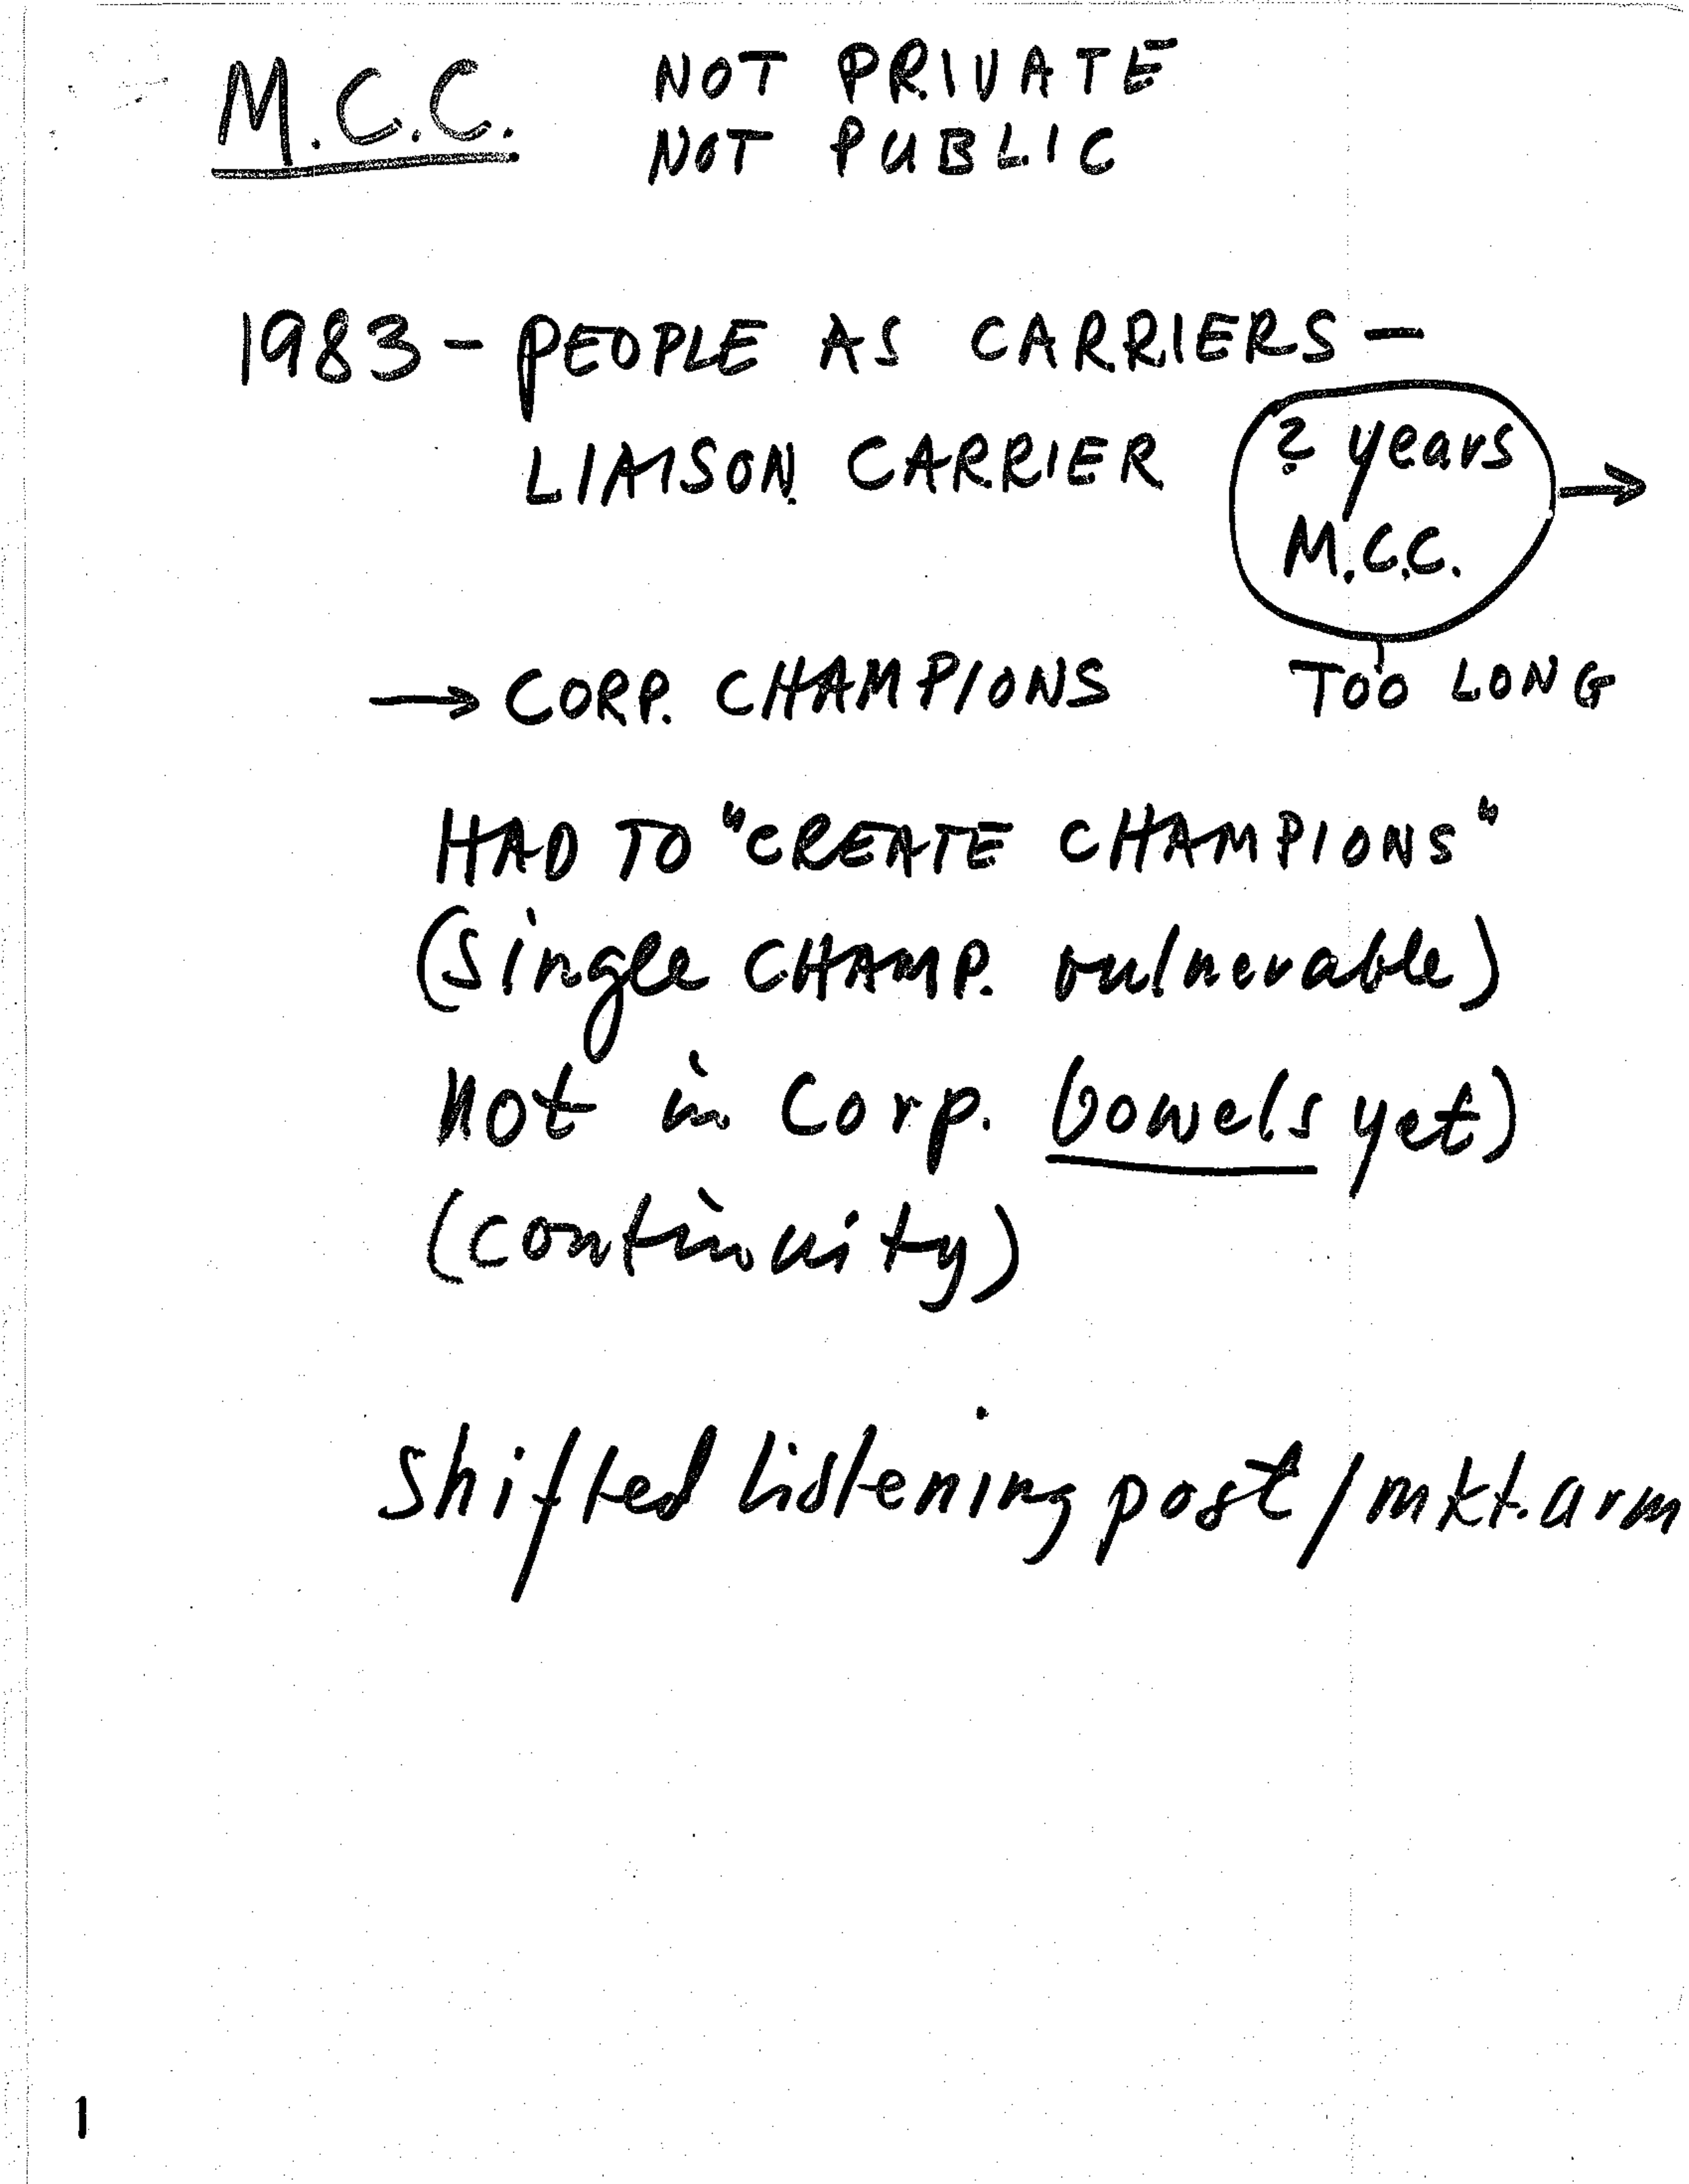 M.C.C. NOT PRIVATE
NOT PUBLIC
1983 - PEOPLE AS CARRIERS -
LIAISON CARRIER
? years
M.C.C. →
→ CORP. CHAMPIONS
TOO LONG
HAD TO "CREATE CHAMPIONS"
(single CHAMP. vulnerable)
not in Corp. bowels yet)
(continuity)
Shifted listening post / mkt. arm
1